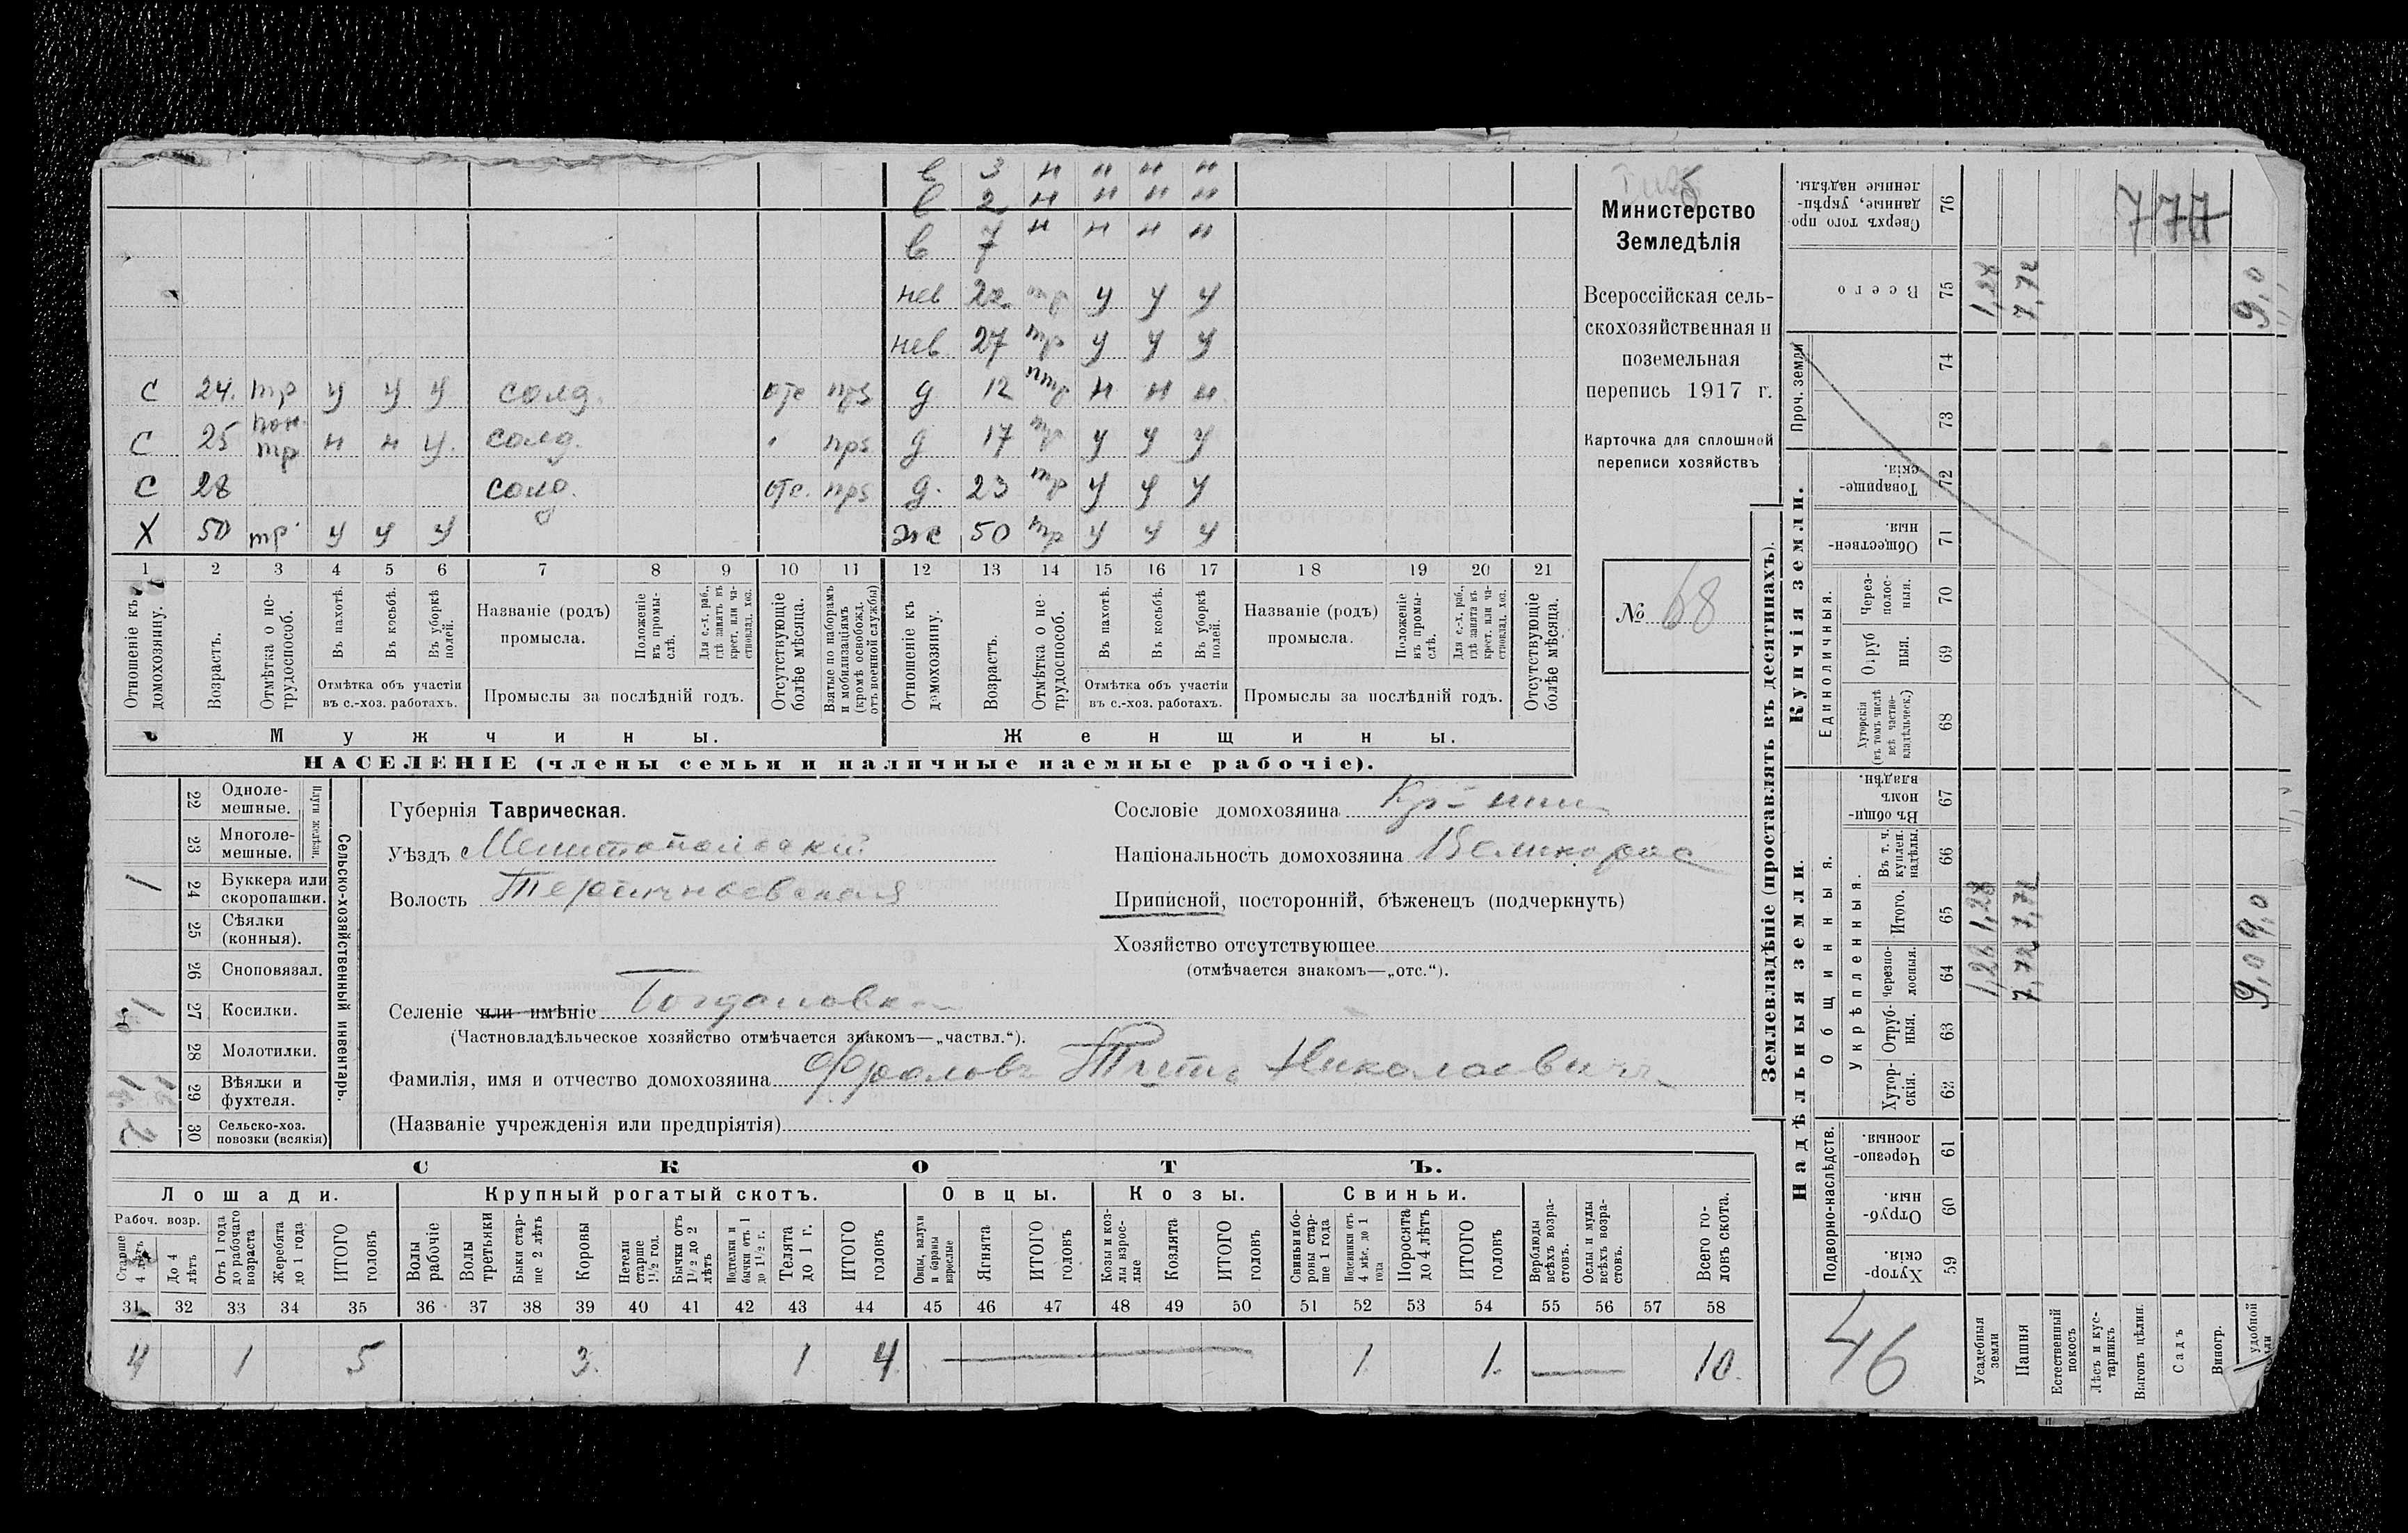 в 3 н н н н
в 2 н н н н
в 7 н н н н
нев 22 тр у у у
нев 27 тр у у у
с 24. тр у у у солд. отс прз д 12 птр н н н
с 25 пол. тр н н у. солд. прз д 17 тр у у у
с 28 солд. отс. прз д. 23 тр у у у
Х 50 тр. у у у же 50 тр у у у
1 2 3 4 5 6 7 8 9 10 11 12 13 14 15 16 17 18 19 20 21
Отношеніе къ домохозяину.
Возрастъ.
Отмѣтка о не-трудоспособ.
Въ пахотѣ.
Въ косьбѣ.
Въ уборкѣ полей.
Отмѣтка объ участіи
въ с.-хоз. работахъ.
Названіе (родъ)
промысла.
Положеніе въ промы-слѣ.
Для с.-х. раб., гдѣ занятъ въ крест. или ча-стновлад. хоз.
Промыслы за послѣдній годъ.
Отсутствующіе болѣе мѣсяца.
Взятые по наборамъ и мобилизаціямъ (кромѣ освобожд. отъ военной службы)
Отношеніе къ домохозяину.
Возрастъ.
Отмѣтка о не-трудоспособ.
Въ пахотѣ.
Въ косьбѣ.
Въ уборкѣ полей.
Отмѣтка объ участіи
въ с.-хоз. работахъ.
Названіе (родъ)
промысла.
Положеніе въ промы-слѣ.
Для с.-х. раб., гдѣ занята въ крест. или ча-стновлад. хоз.
Промыслы за послѣдній годъ.
Отсутствующіе болѣе мѣсяца.
Мужчины.
Женщины.
НАСЕЛЕНІЕ (члены семьи и наличные наемные рабочіе).
Министерство
Земледѣлія
Всероссійская сель-
скохозяйственная и
поземельная
перепись 1917 г.
Карточка для сплошной
переписи хозяйствъ
№ 68
Губернія Таврическая.
Уѣздъ Мелитопольскій
Волость Терпеньевская
Селеніе или имѣніе Богдановка
(Частновладѣльческое хозяйство отмѣчается знакомъ—„частвл.“).
Фамилія, имя и отчество домохозяина Фроловъ Титъ Николаевичъ
(Названіе учрежденія или предпріятія)
Сословіе домохозяина Кр-нин
Національность домохозяина Великорос
Приписной, посторонній, бѣженецъ (подчеркнуть)
Хозяйство отсутствующее
(отмѣчается знакомъ—„отс.“).
Сельско-хозяйственный инвентарь.
Плуги желѣзн.
22 Одноле-мешные.
23 Многоле-мешные.
24 Буккера или скоропашки. 1
25 Сѣялки (конныя).
26 Сноповязал.
27 Косилки. 1
28 Молотилки.
29 Вѣялки и фухтеля.
30 Сельско-хоз. повозки (всякія)
СКОТЪ.
Лошади. Крупный рогатый скотъ. Овцы. Козы. Свиньи.
Рабоч. возр.
Старше 4 лѣтъ
До 4 лѣтъ
Отъ 1 года до рабочаго возраста
Жеребята до 1 года
ИТОГО головъ
Волы рабочіе
Волы третьяки
Быки стар-ше 2 лѣтъ
Коровы
Нетели старше 1½ год.
Бычки отъ 1½ до 2 лѣтъ
Подтелки и бычки отъ 1 до 1½ г.
Телята до 1 г.
ИТОГО головъ
Овцы, валухи и бараны взрослые
Ягнята
ИТОГО головъ
Козы и коз-лы взрос-лые
Козлята
ИТОГО головъ
Свиньи и бо-ровы стар-ше 1 года
Подсвинки отъ 4 мѣс. до 1 года
Поросята до 4 лѣтъ
ИТОГО головъ
Верблюды всѣхъ возра-стовъ.
Ослы и мулы всѣхъ возра-стовъ.
Всего го-ловъ скота.
31 32 33 34 35 36 37 38 39 40 41 42 43 44 45 46 47 48 49 50 51 52 53 54 55 56 57 58
4 1 5 3. 1 4 1 1. 10.
Землевладѣніе (проставлять въ десятинахъ).
Надѣльныя земли.
Купчія земли.
Проч. земли
Подворно-наслѣдств.
Общинныя.
Укрѣпленныя.
Единоличныя.
Сверхъ того про-данные, укрѣп-ленные надѣлы. 76
Всего 75 1,28 7,72 9,0
777
74
73
Товарище-скія. 72
Обществен-ныя. 71
Через-полос-ныя. 70
Отруб-ныя. 69
Хуторскія (въ томъ числѣ всѣ частно-владѣльческ.) 68
Въ общи-номъ владѣн. 67
Въ т. ч. куплен. надѣлы. 66
Итого. 65 1,28 7,72 9,0
Черезпо-лосныя. 64 1,28 7,72 9,0
Отруб-ныя. 63
Хутор-скія. 62
Черезпо-лосныя. 61
Отруб-ныя. 60
Хутор-скія. 59
46
Усадебныя земли
Пашня
Естественный покосъ
Лѣсъ и кус-тарникъ
Выгонъ цѣлин.
Садъ
Виногр.
удобной